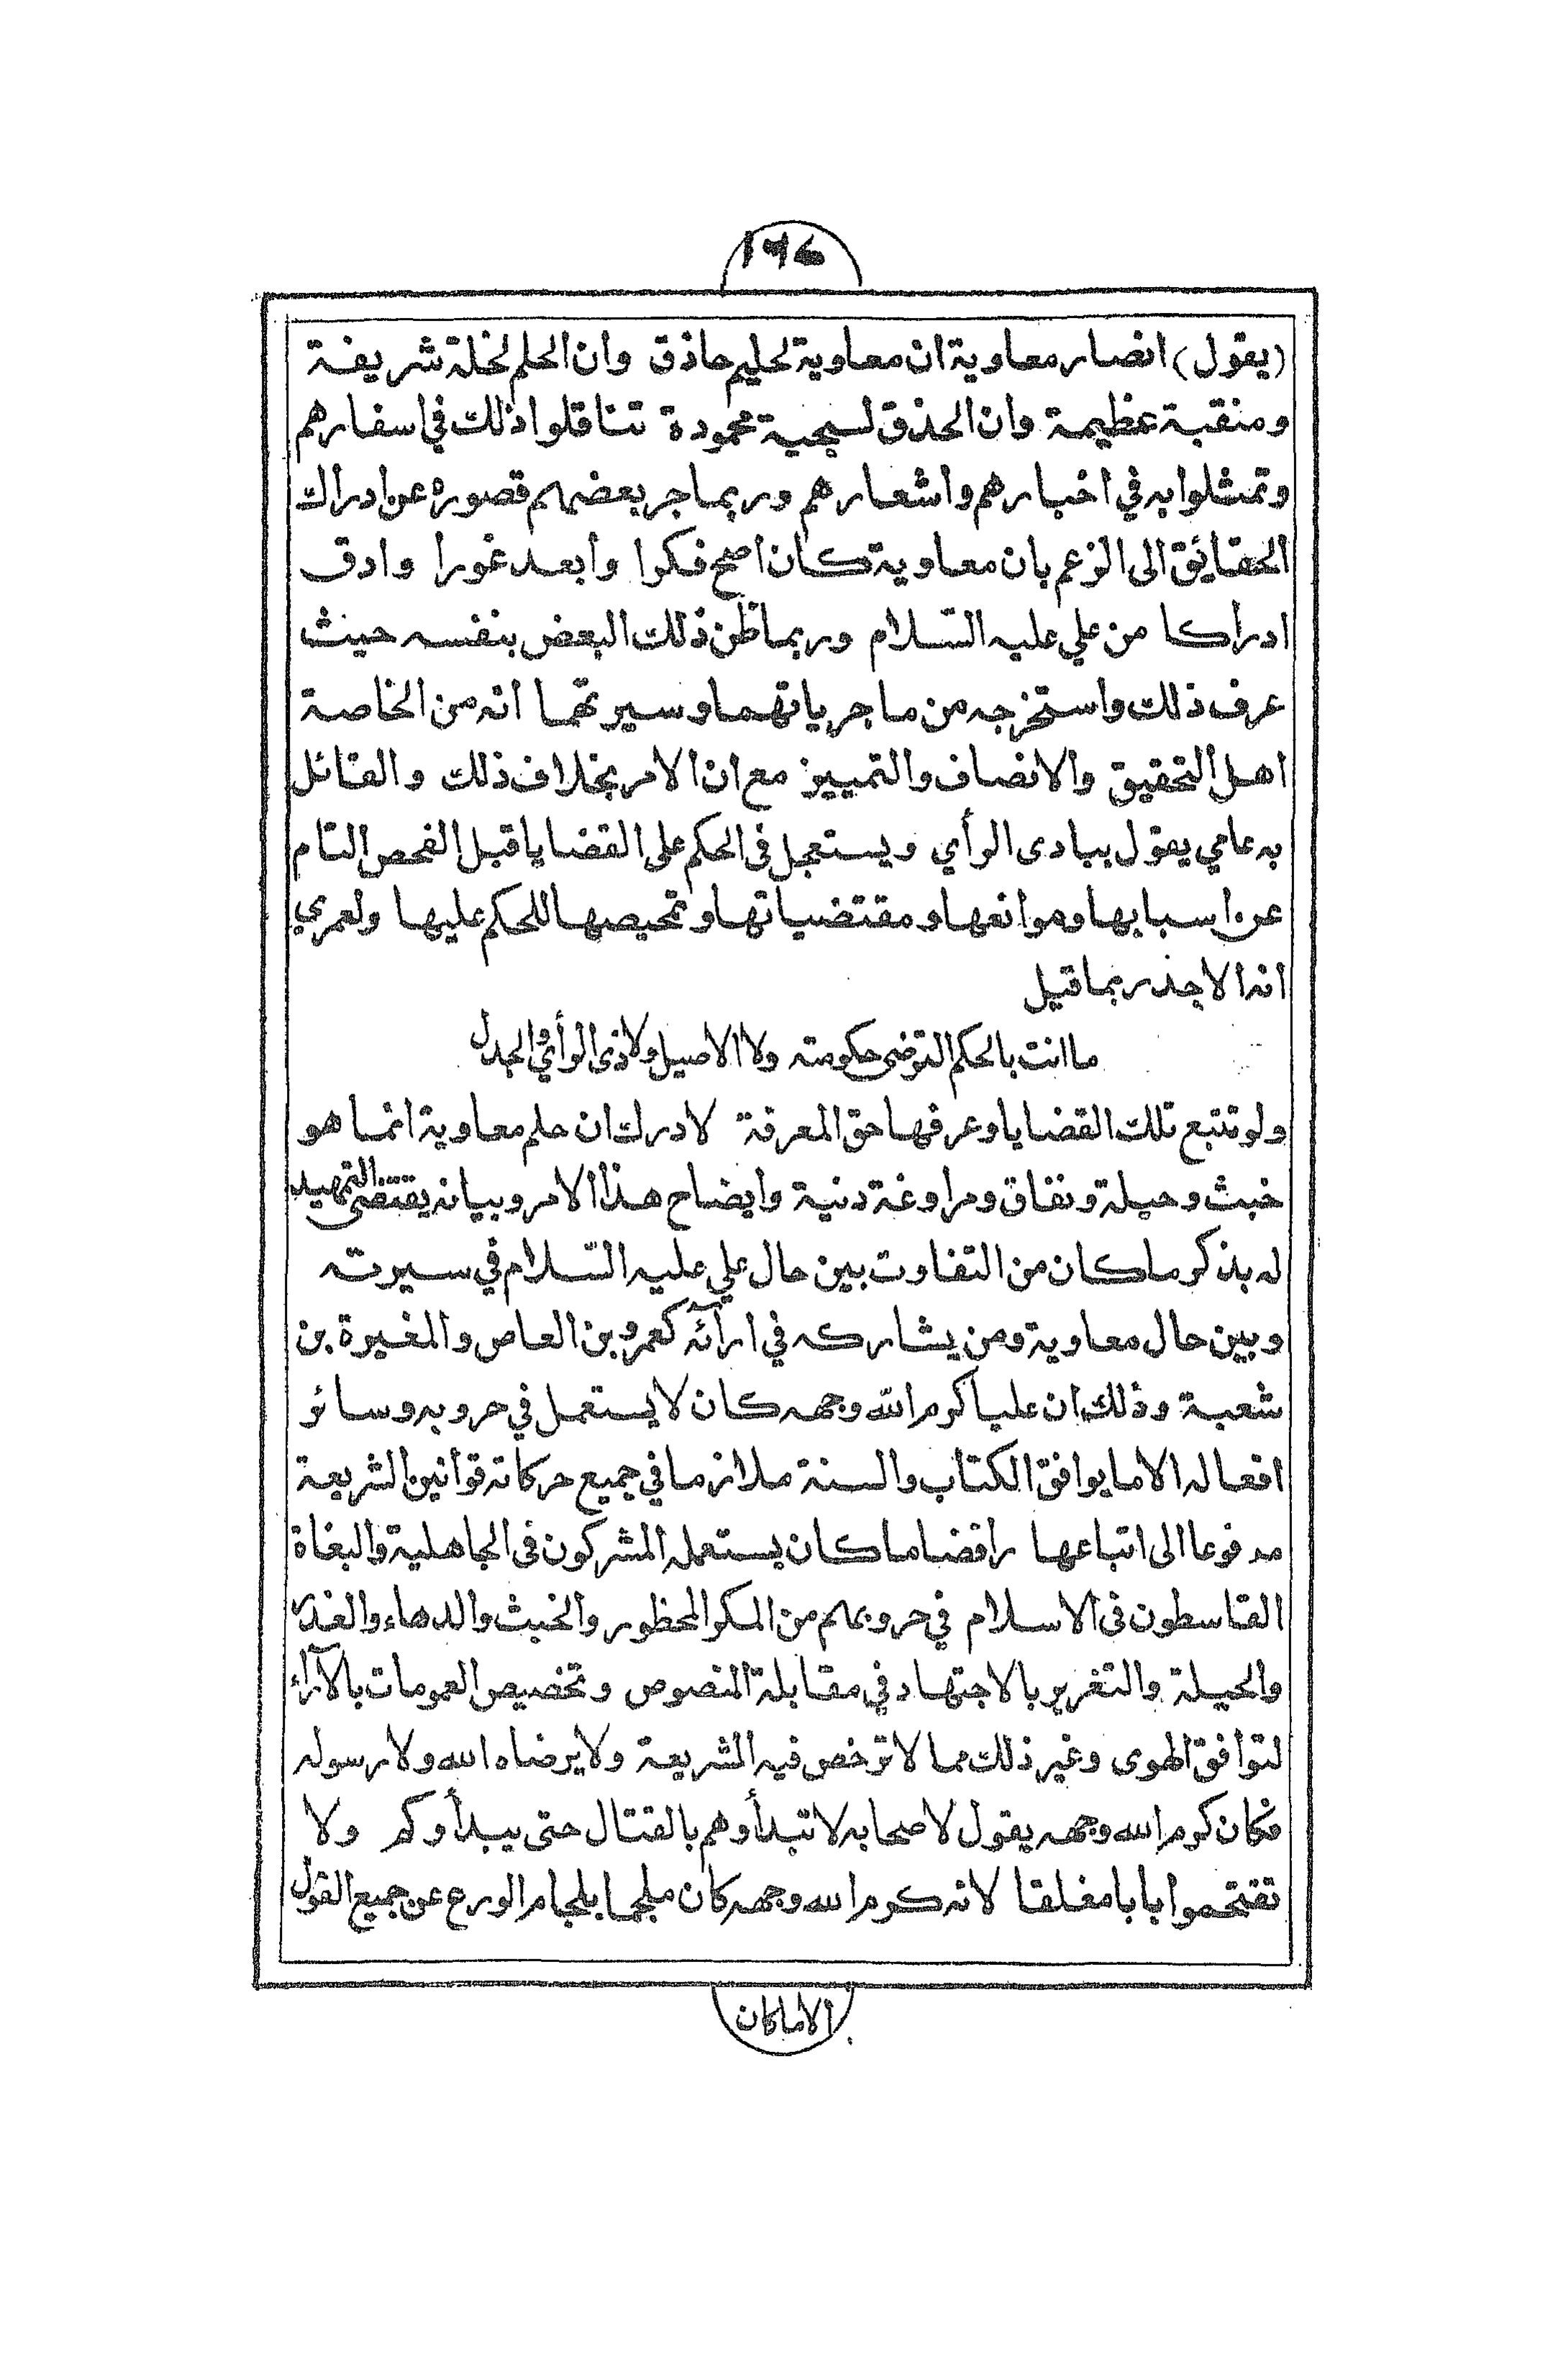 (يقول) انصار معاوية ان معاوية لحليم حاذق وان الحلم لخلة شريفة
ومنقبة عظيمة وان الحذق لسجية محمودة تناقلوا ذلك في اسفارهم
وتمثلوا به في اخبارهم واشعارهم وربما جر بعضهم قصوره عن ادراك
الحقايق الى الزعم بان معاوية كان اصح فكرا وابعد غورا وادق
ادراكا من علي عليه السّلام وربما ظن ذلك البعض بنفسه حيث
عرف ذلك واستخرجه من ماجرياتهما وسيرتهما انه من الخاصة
اهل التحقيق والانصاف والتمييز مع ان الامر بخلاف ذلك والقائل
به عامي يقول ببادى الرأي ويستعجل فى الحكم على القضايا قبل الفحص التام
عن اسبابها وموانعها ومقتضياتها وتمحيصها للحكم عليها ولعمري
انه الاجدر بما قيل
ما انت بالحكم الترضى حكومته ولا الاصيل ولا ذى الرأي والجدل
ولو تتبع تلك القضايا وعرفها حق المعرفة لادرك ان حلم معاوية انما هو
خبث وحيلة ونفاق ومراوغة دنية وايضاح هذا الامر وبيانه يقتضى التمهيد
له بذكر ما كان من التفاوت بين حال علي عليه السّلام في سيرته
وبين حال معاوية ومن يشاركه في ارآئه كعمرو بن العاص والمغيرة بن
شعبة وذلك ان عليا كرم الله وجهه كان لا يستعمل في حروبه وسائر
افعاله الا ما يوافق الكتاب والسنة ملازما في جميع حركاته قوانين الشريعة
مدفوعا الى اتباعها رافضا ما كان يستعمله المشركون فى الجاهلية والبغاة
القاسطون فى الاسلام في حروبهم من المكر المحظور والخبث والدهاء والغدر
والحيلة والتغرير بالاجتهاد في مقابلة النصوص وتخصيص العمومات بالآراء
لتوافق الهوى وغير ذلك مما لا ترخص فيه الشريعة ولا يرضاه الله ولا رسوله
فكان كرم الله وجهه يقول لاصحابه لا تبدأوهم بالقتال حتى يبدأوكم ولا
تقتحموا بابا مغلقا لانه كرم الله وجهه كان ملجما بلجام الورع عن جميع القول
الا ما كان